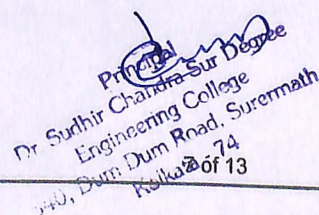 Principal
Dr. Sudhir Chandra Sur Degree
Engineering College
540, Dum Dum Road, Surermath
Kolkata 74
7 of 13